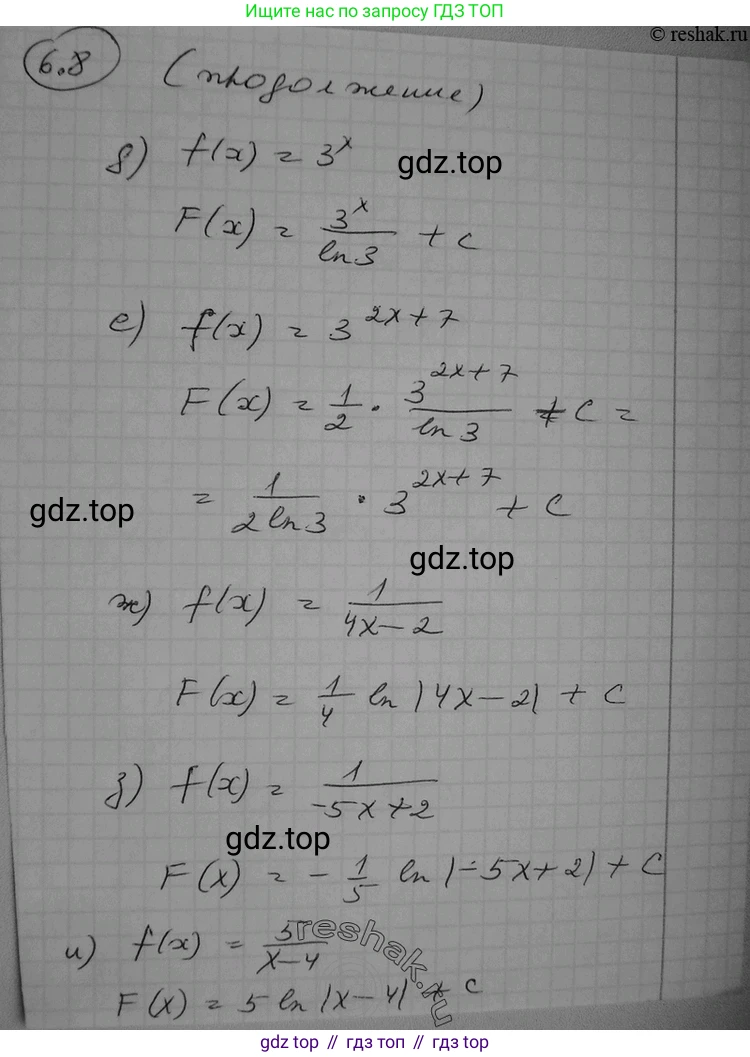 Ищите нас по запросу ГДЗ ТОП
© reshak.ru
6.8 (продолжение)
д) f(x) = 3^x
gdz.top
F(x) = 3^x / ln 3 + c
е) f(x) = 3^(2x+7)
F(x) = 1/2 · 3^(2x+7) / ln 3 + C =
= 1 / (2 ln 3) · 3^(2x+7) + C
gdz.top
gdz.top
ж) f(x) = 1 / (4x−2)
F(x) = 1/4 ln |4x−2| + C
з) f(x) = 1 / (−5x+2)
gdz.top
F(x) = − 1/5 ln |−5x+2| + C
и) f(x) = 5 / (x−4)
reshak.ru
F(x) = 5 ln |x−4| + C
gdz.top // gdz.top // gdz.top